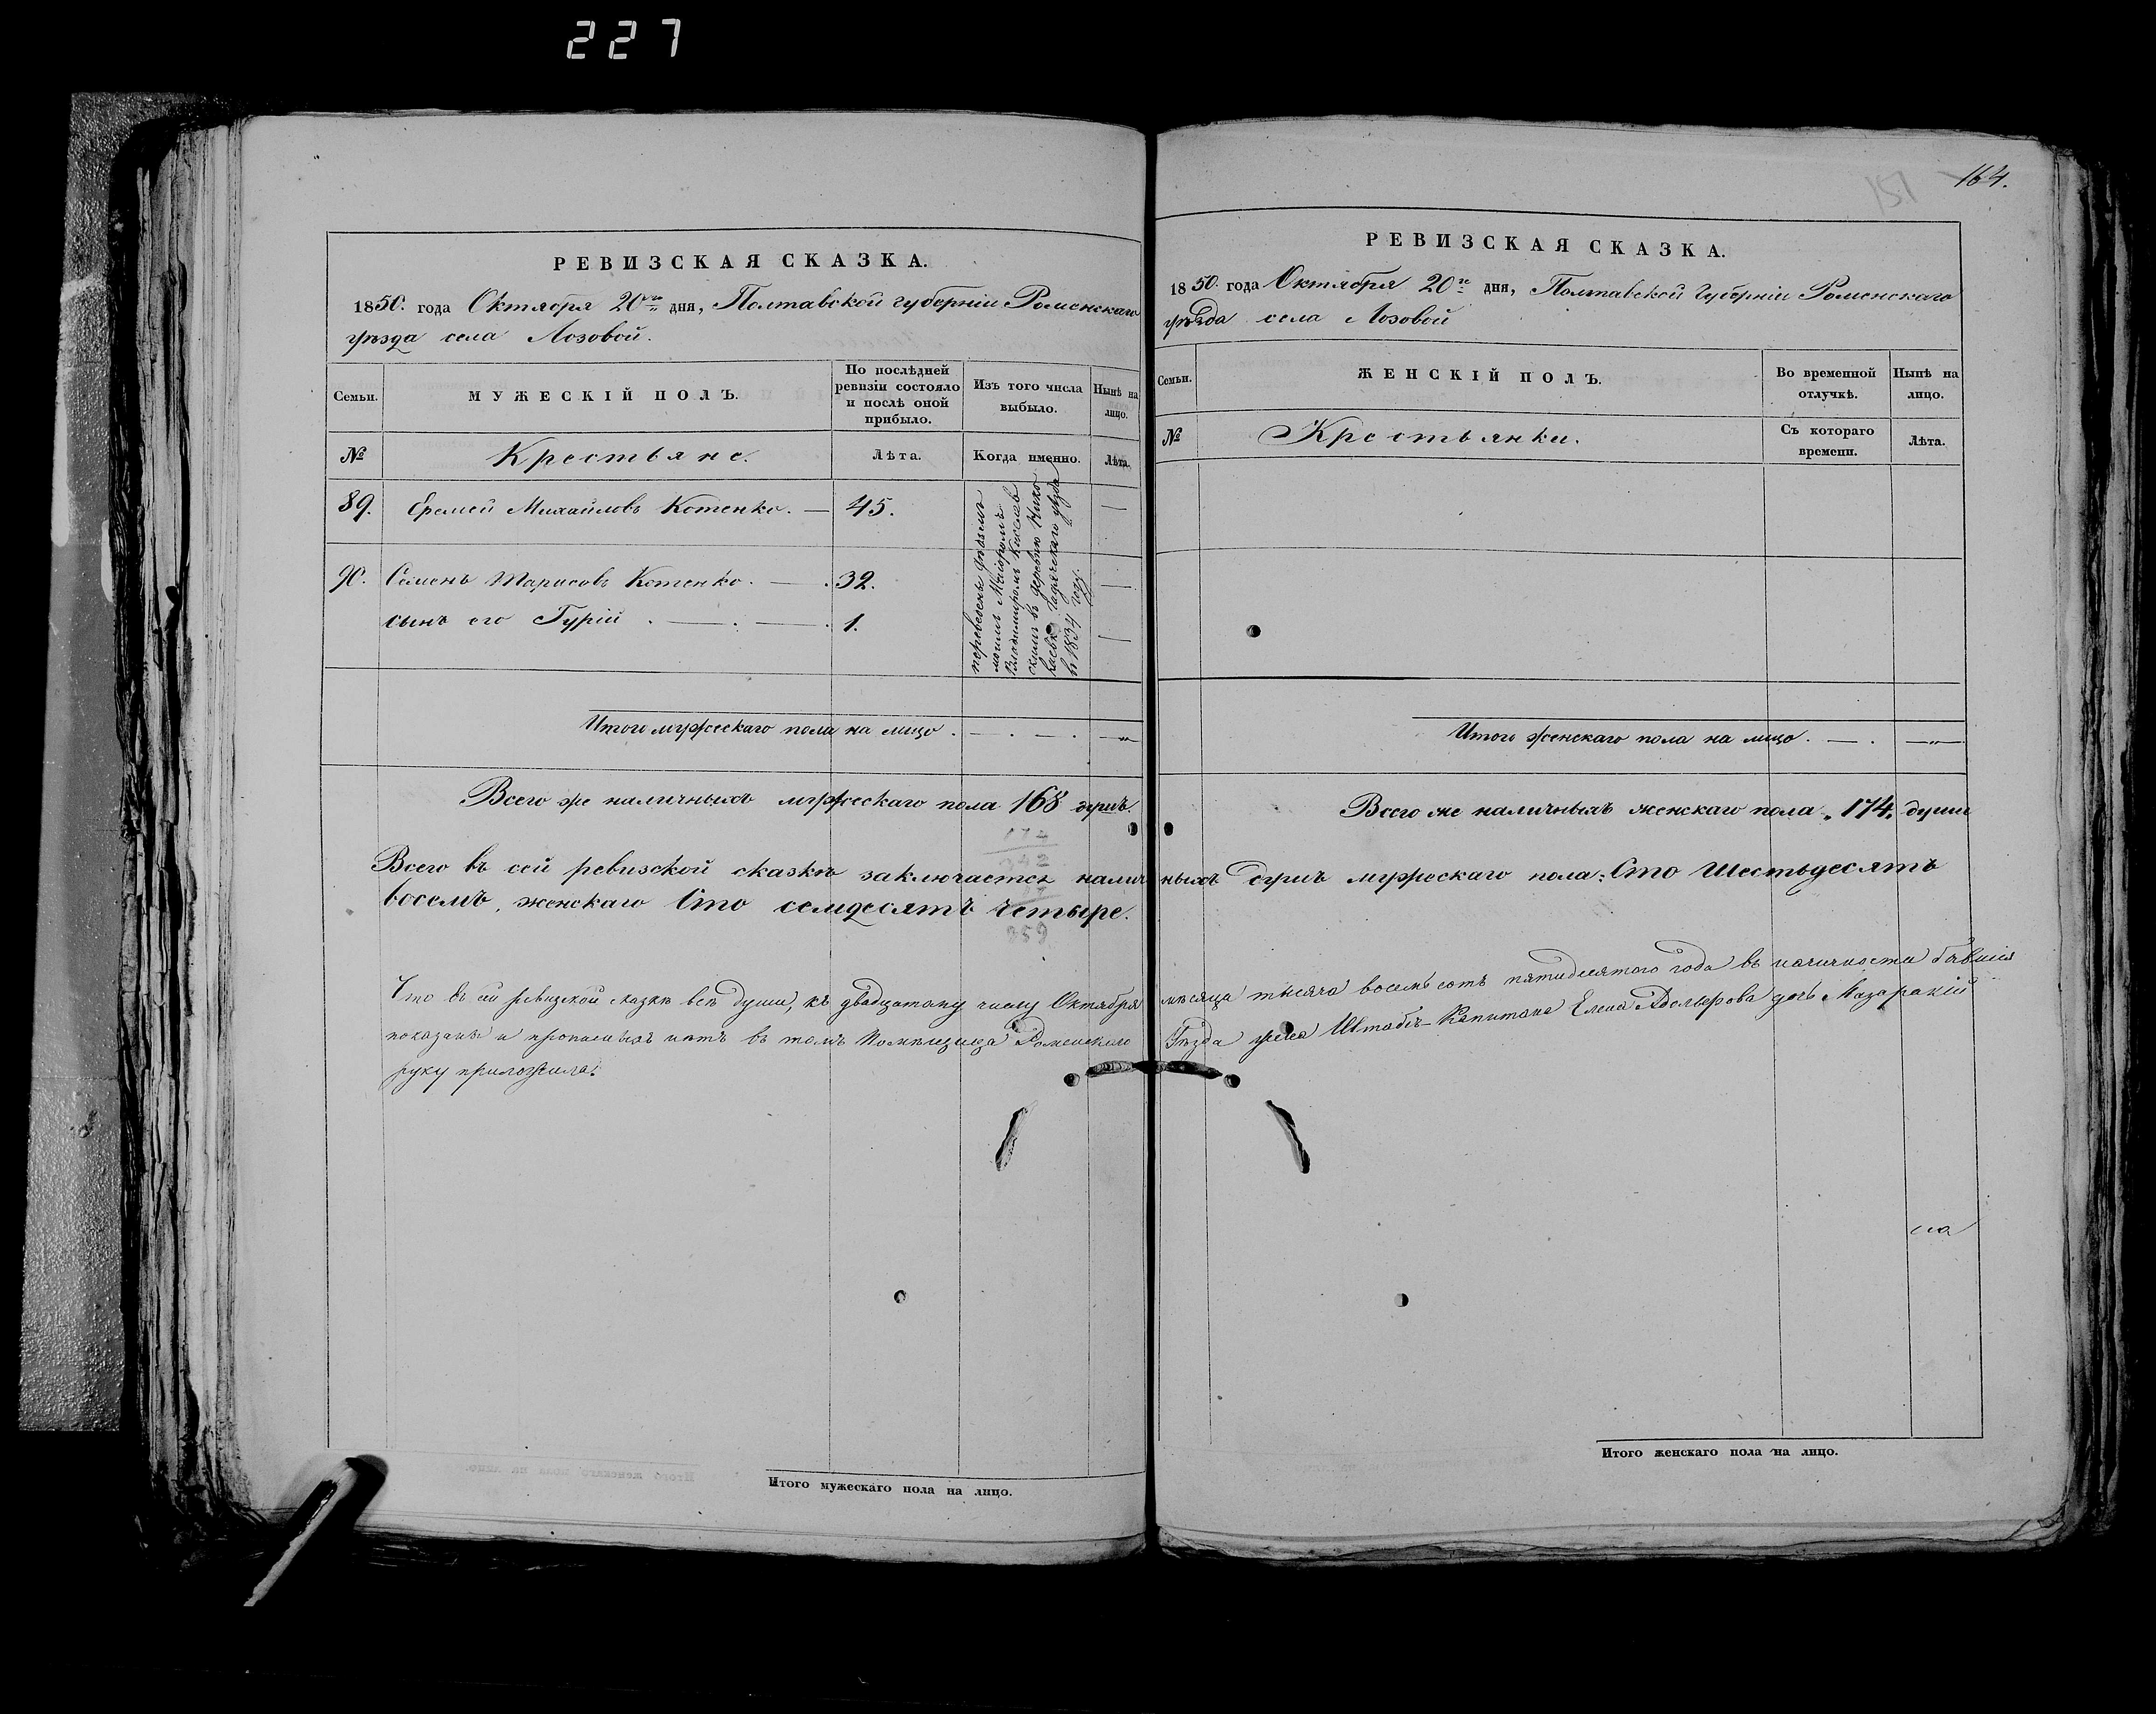 227
РЕВИЗСКАЯ СКАЗКА.
1850. года Октября 20го дня, Полтавской губерніи Роменскаго
уѣзда села Лозовой.
Семьи.
МУЖЕСКІЙ ПОЛЪ.
По послѣдней
ревизіи состояло
и послѣ оной
прибыло.
Изъ того числа
выбыло.
Нынѣ на
лицо.
№
Крестьяне.
Лѣта.
Когда именно.
Лѣта.
89. Еремей Михайловъ Котенко. — 45. —
90. Семенъ Тарисовъ Котенко. — 32. —
сынъ его Гурій . — . — . 1. —
переведены
моимъ Маіоромъ
Владимиромъ
скимъ въ деревню Нико
лаевку Гадячскаго уѣзда
въ 1834 году.
Итого мужескаго пола на лицо . — . — . — „
Всего же наличныхъ мужескаго пола 168 душъ.
174
342
Всего въ сей ревизской сказкѣ заключается налич
восемъ, женскаго Сто семдесятъ четыре.
859
Что въ сей ревизской сказкѣ всѣ души, къ двадцатому числу Октября
показаны и прописныхъ нѣтъ въ томъ Помѣщица Роменскаго
руку приложила.
Итого мужескаго пола на лицо.
151
164.
РЕВИЗСКАЯ СКАЗКА.
1850. года Октября 20го дня, Полтавской Губерніи Роменскаго
уѣзда села Лозовой
Семьи.
ЖЕНСКІЙ ПОЛЪ.
Во временной
отлучкѣ.
Нынѣ на
лицо.
№
Крестьянки.
Съ котораго
времени.
Лѣта.
Итого женскаго пола на лицо . — . — „
Всего же наличныхъ женскаго пола „ 174. души
ныхъ душъ мужескаго пола: Сто Шестьдесятъ
мѣсяца тысяча восемьсотъ пятидесятого года въ наличности бывшія
Уѣзда жена Штабсъ-Капитана Елена дочь Мазаракій
Итого женскаго пола на лицо.